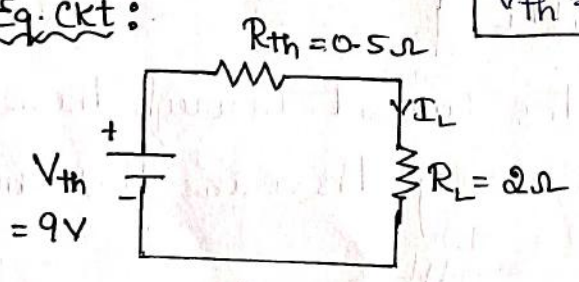 Eq. Ckt :
Vth
Rth = 0.5Ω
+
IL
Vth
RL = 2Ω
-
= 9V